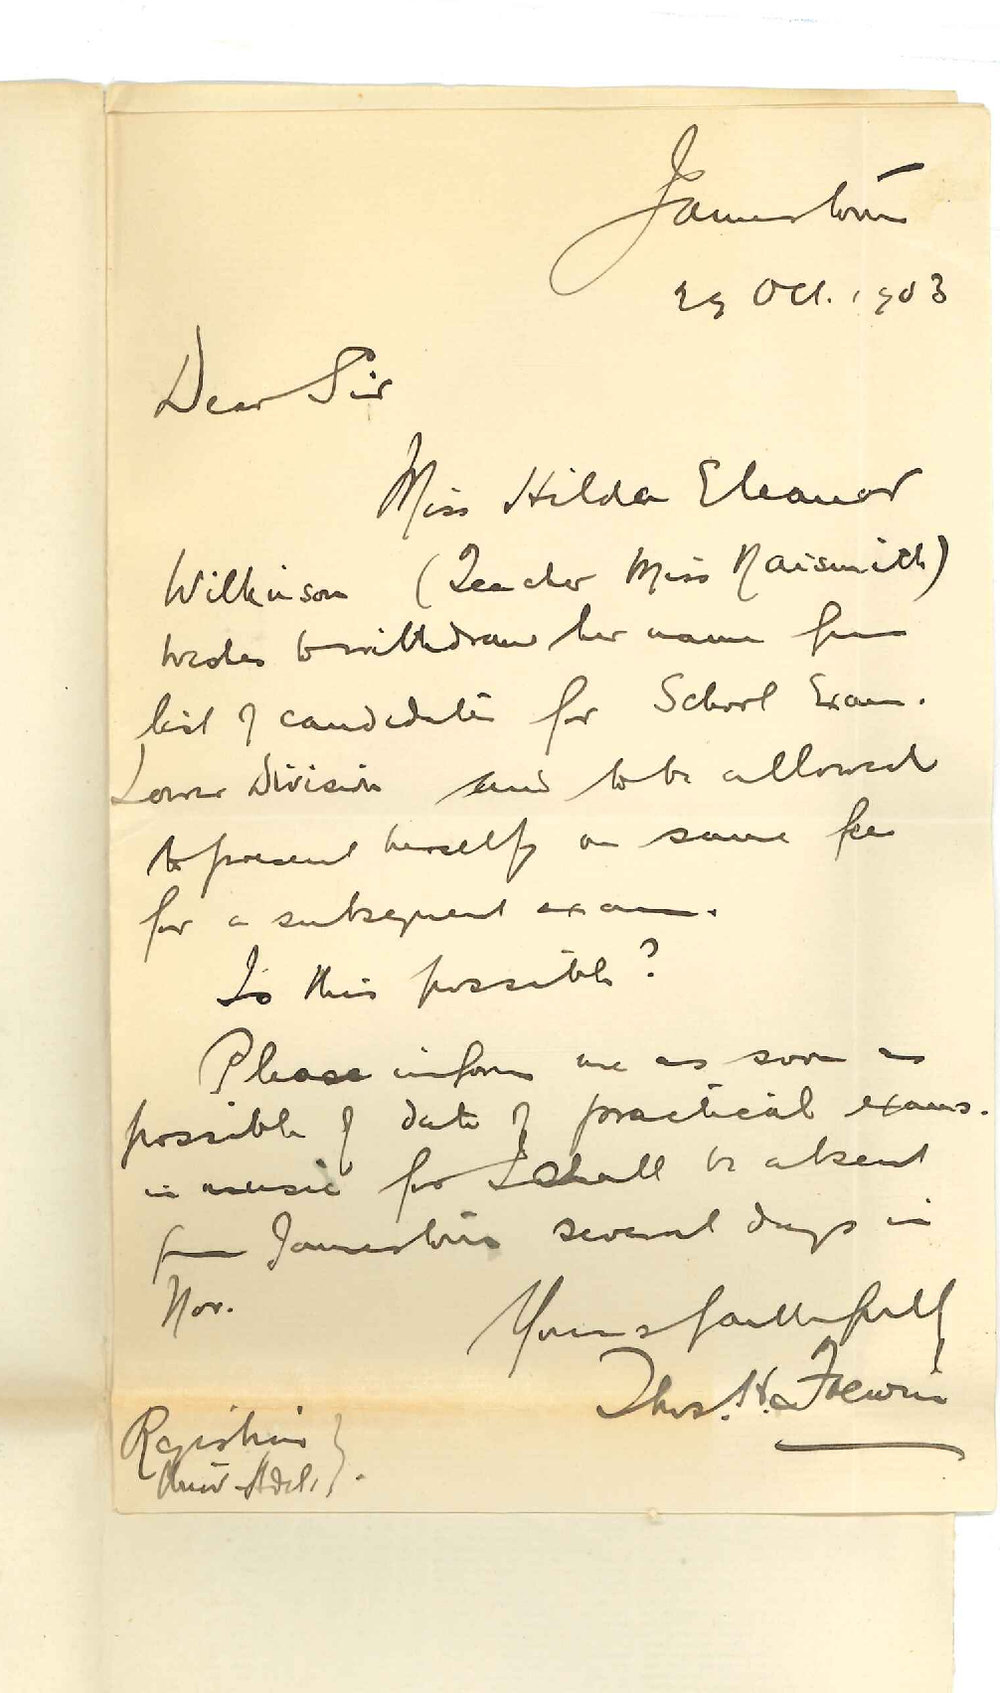 Jamestown
29 Oct. 1903
Dear Sir
Miss Hilda Eleanor
Wilkinson (Teacher Miss Naismith)
wishes to withdraw her name from
list of candidates for School Exam.
Lower Division and to be allowed
to present herself on same fee
for a subsequent exam.
Is this possible?
Please inform me as soon as
possible of date of practical exams.
in music for I shall be absent
from Jamestown several days in
Nov.
Yours faithfully
Thos. H. Frewin
Registrar
Univ Adel.